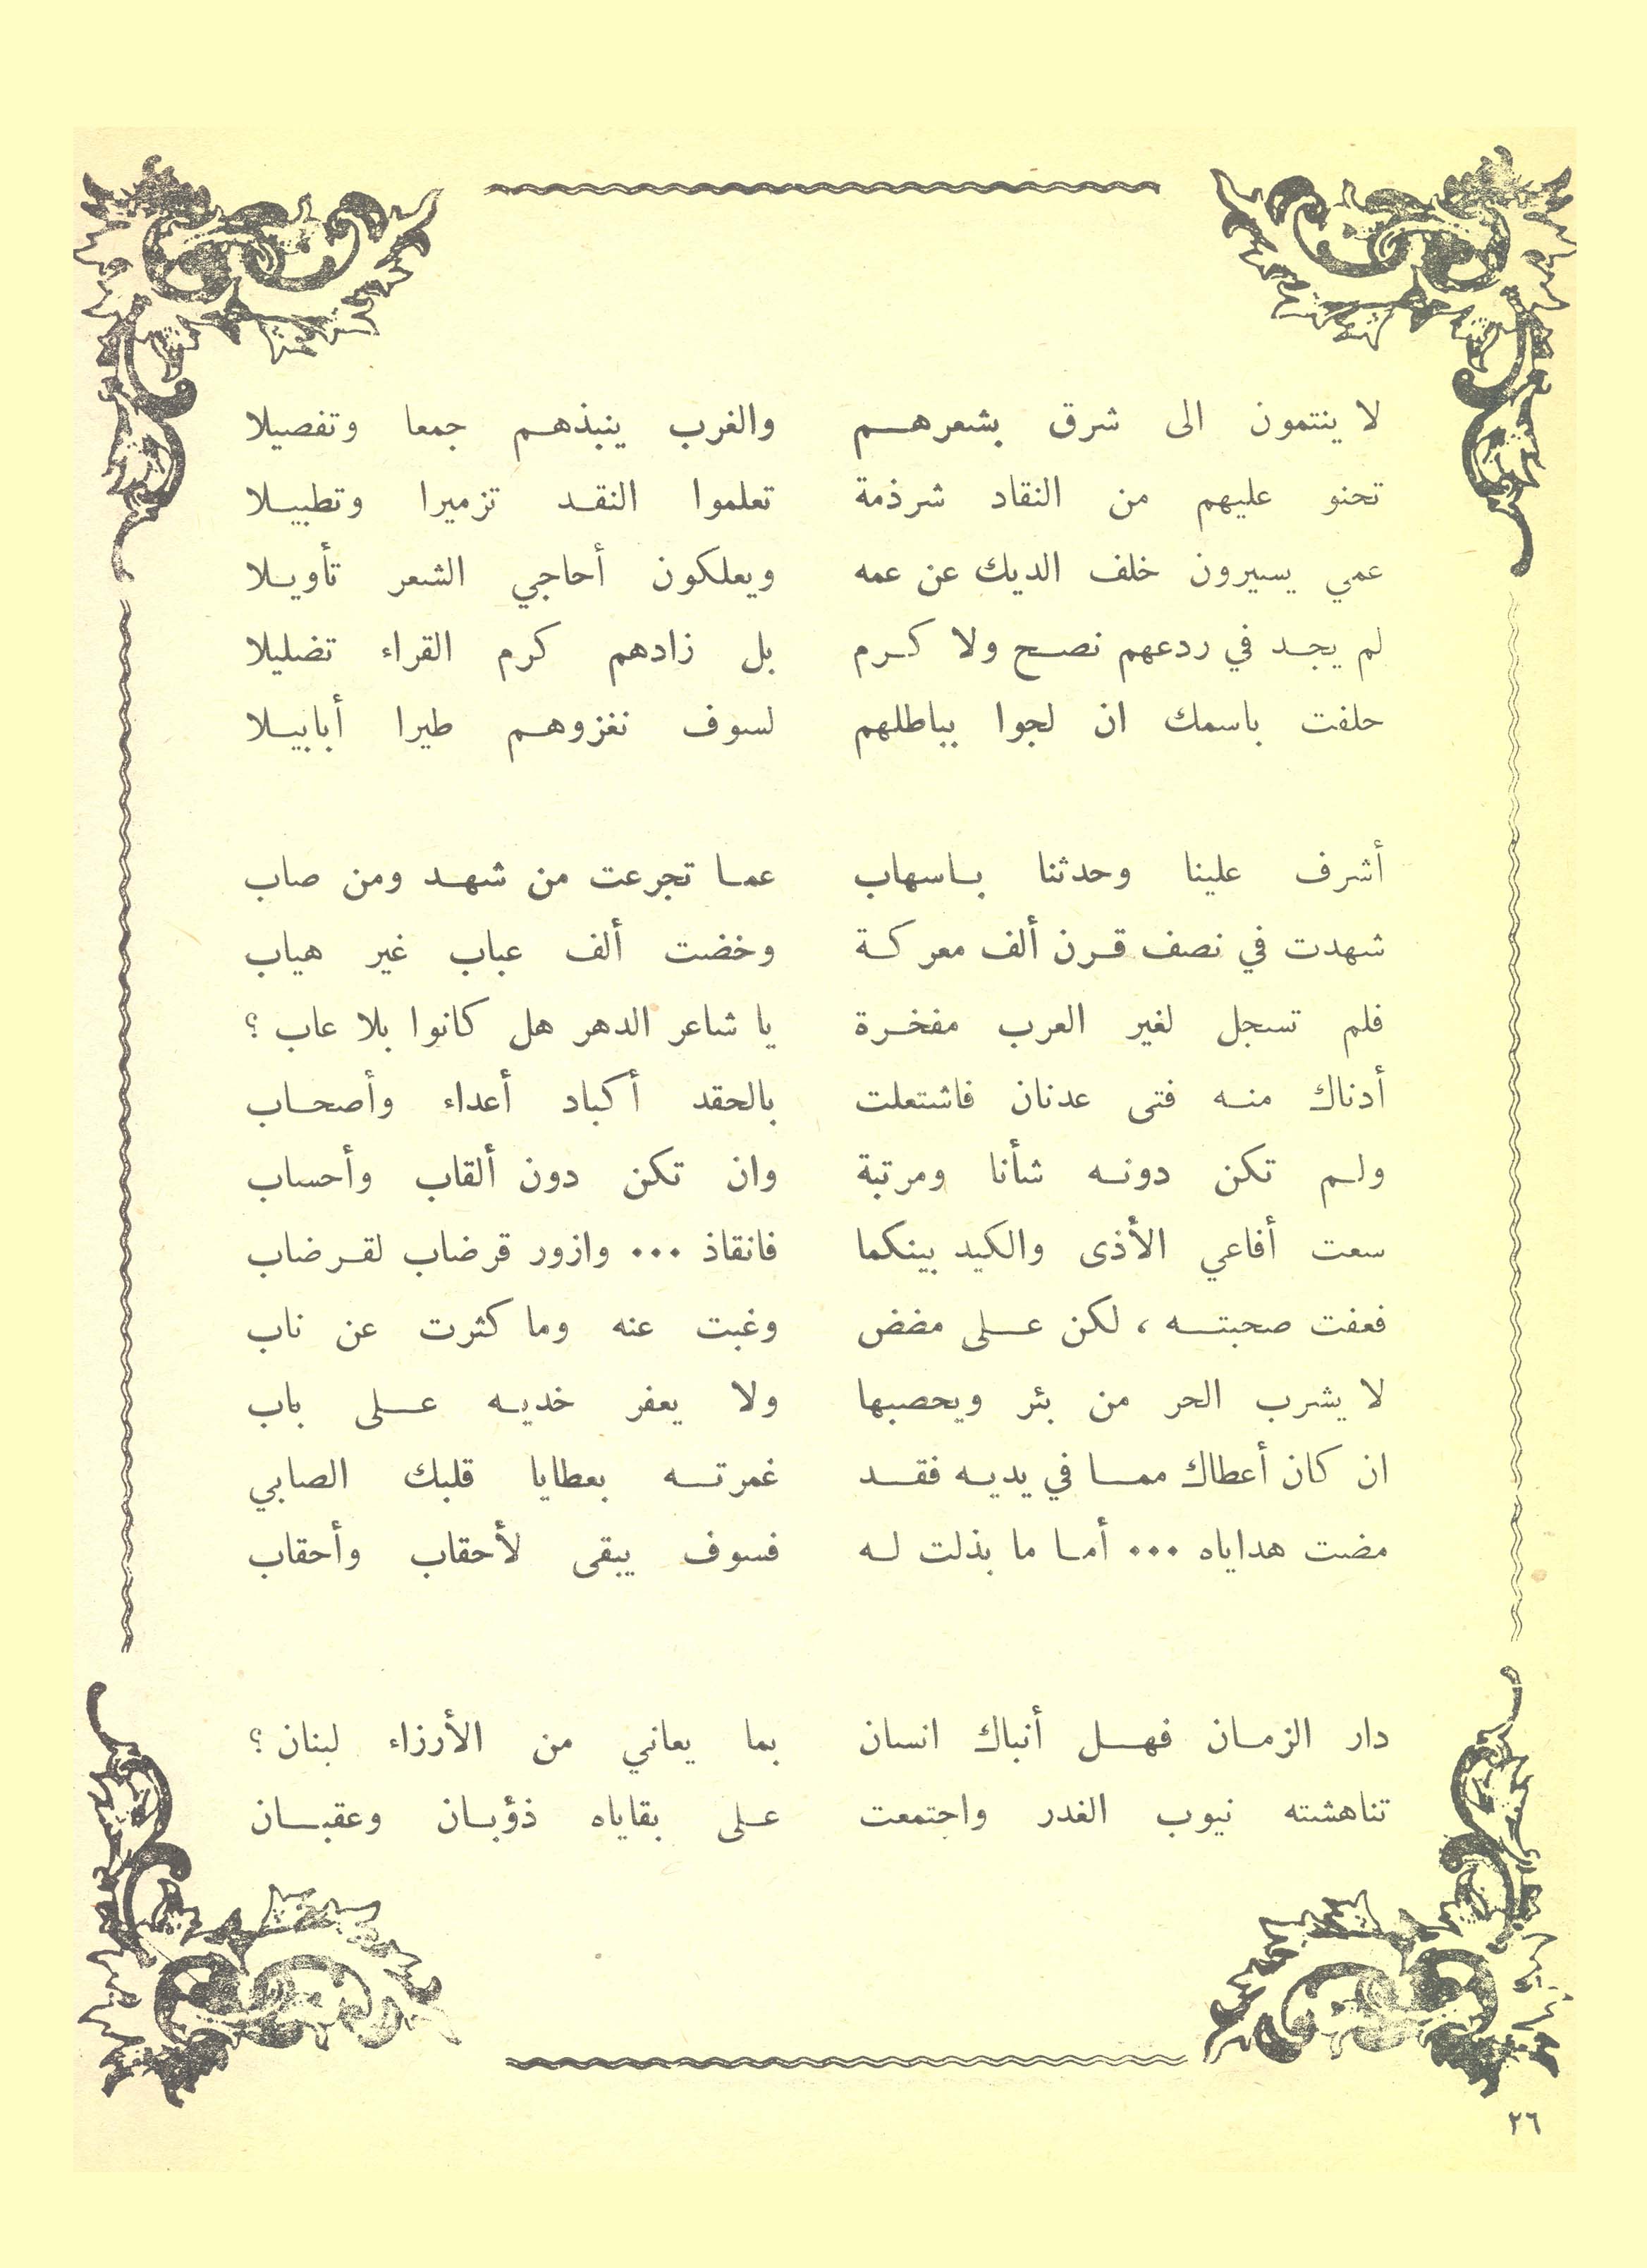 لا ينتمون الى شرق بشعرهم والغرب ينبذهم جمعا وتفصيلا
تحنو عليهم من النقاد شرذمة تعلموا النقد تزميرا وتطبيلا
عمي يسيرون خلف الديك عن عمه ويعلكون أحاجي الشعر تأويلا
لم يجد في ردعهم نصح ولا كرم بل زادهم كرم القراء تضليلا
حلفت باسمك ان لجوا بباطلهم لسوف نغزوهم طيرا أبابيلا
أشرف علينا وحدثنا باسهاب عما تجرعت من شهد ومن صاب
شهدت في نصف قرن ألف معركة وخضت ألف عباب غير هياب
فلم تسجل لغير العرب مفخرة يا شاعر الدهر هل كانوا بلا عاب ؟
أدناك منه فتى عدنان فاشتعلت بالحقد أكباد أعداء وأصحاب
ولم تكن دونه شأنا ومرتبة وان تكن دون ألقاب وأحساب
سعت أفاعي الأذى والكيد بينكما فانقاذ ... وازور قرضاب لقرضاب
فعفت صحبته ، لكن على مضض وغبت عنه وما كثرت عن ناب
لا يشرب الحر من بئر ويحصبها ولا يعفر خديه على باب
ان كان أعطاك مما في يديه فقد غمرته بعطايا قلبك الصابي
مضت هداياه ... أما ما بذلت له فسوف يبقى لأحقاب وأحقاب
دار الزمان فهل أنباك انسان بما يعاني من الأرزاء لبنان ؟
تناهشته نيوب الغدر واجتمعت على بقاياه ذؤبان وعقبان
٢٦